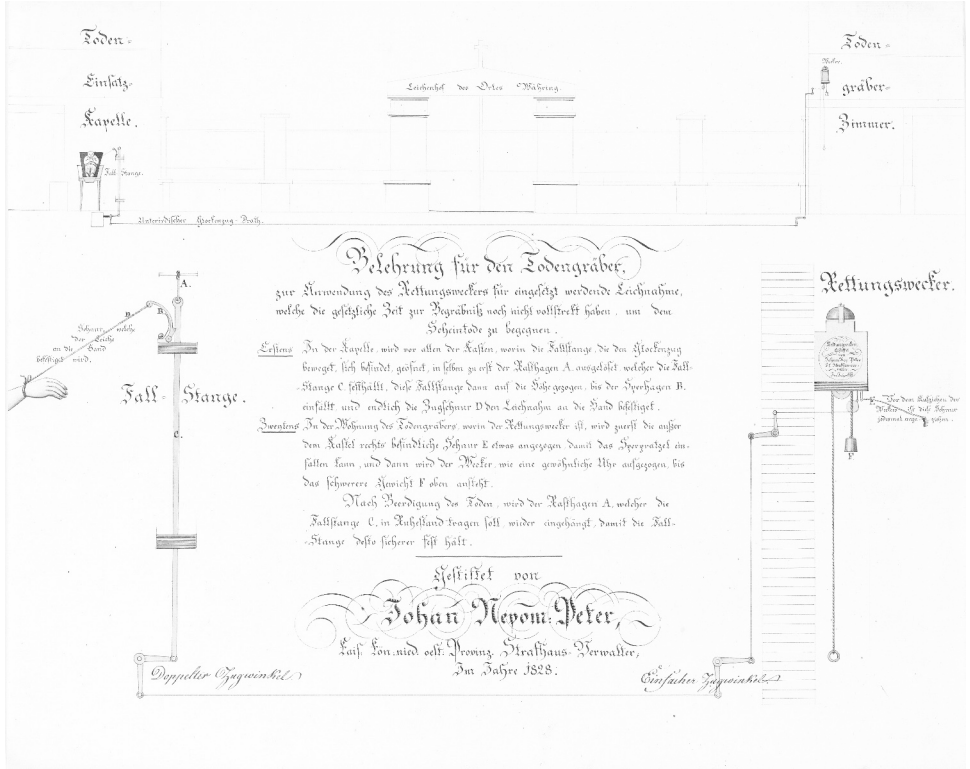 Toden-
Einsatz-
Kapelle.
Fall Stange.
Unterirdischer Glockenzug-Drath.
Leichenhof des Ortes Währing.
Toden-
gräber-
Zimmer.
Weker.
Belehrung für den Todengräber,
zur Anwendung des Rettungsweckers für eingesetzt werdende Leichnahme,
welche die gesetzliche Zeit zur Begräbniß noch nicht vollstrekt haben, um dem
Scheintode zu begegnen.
Erstens In der Kapelle, wird vor allen der Kasten, worin die Fallstange, die den Glockenzug
beweget, sich befindet, geöfnet, in selben zu erst der Rasthagen A. ausgelößt welcher die Fall-
-Stange C. festhällt, diese Fallstange dann auf die Höhe gezogen, bis der Sperhagen B.
einfällt, und endlich die Zugschnur D den Leichnahm an die Hand befestiget.
Zweytens In der Wohnung des Todengräbers, worin der Rettungswecker ist, wird zuerst die außer
dem Kastel rechts befindliche Schnur E etwas angezogen damit das Sperpratzel ein-
fallen kann, und dann wird der Wecker, wie eine gewöhnliche Uhr aufgezogen, bis
das schwerere Gewicht F oben ansteht.
Nach Beerdigung des Toden, wird der Rasthagen A, welcher die
Fallstange C, in Ruhestand tragen soll, wieder eingehängt, damit die Fall-
-Stange desto sicherer fest hält.
Gestiftet von
Johan Nepom: Peter,
Kais. kön. nied. oest. Provinz. Strafhaus-Verwalter,
Im Jahre 1828.
A.
B.
D.
Schnur, welche
der Leiche
an die Hand
befestiget wird.
Fall-Stange.
C.
Doppelter Zugwinkel
Rettungswecker.
Vor dem Aufziehen des
Weckers ist diese Schnur
jedesmal anzu ziehen.
E
F
Einfacher Zugwinkel